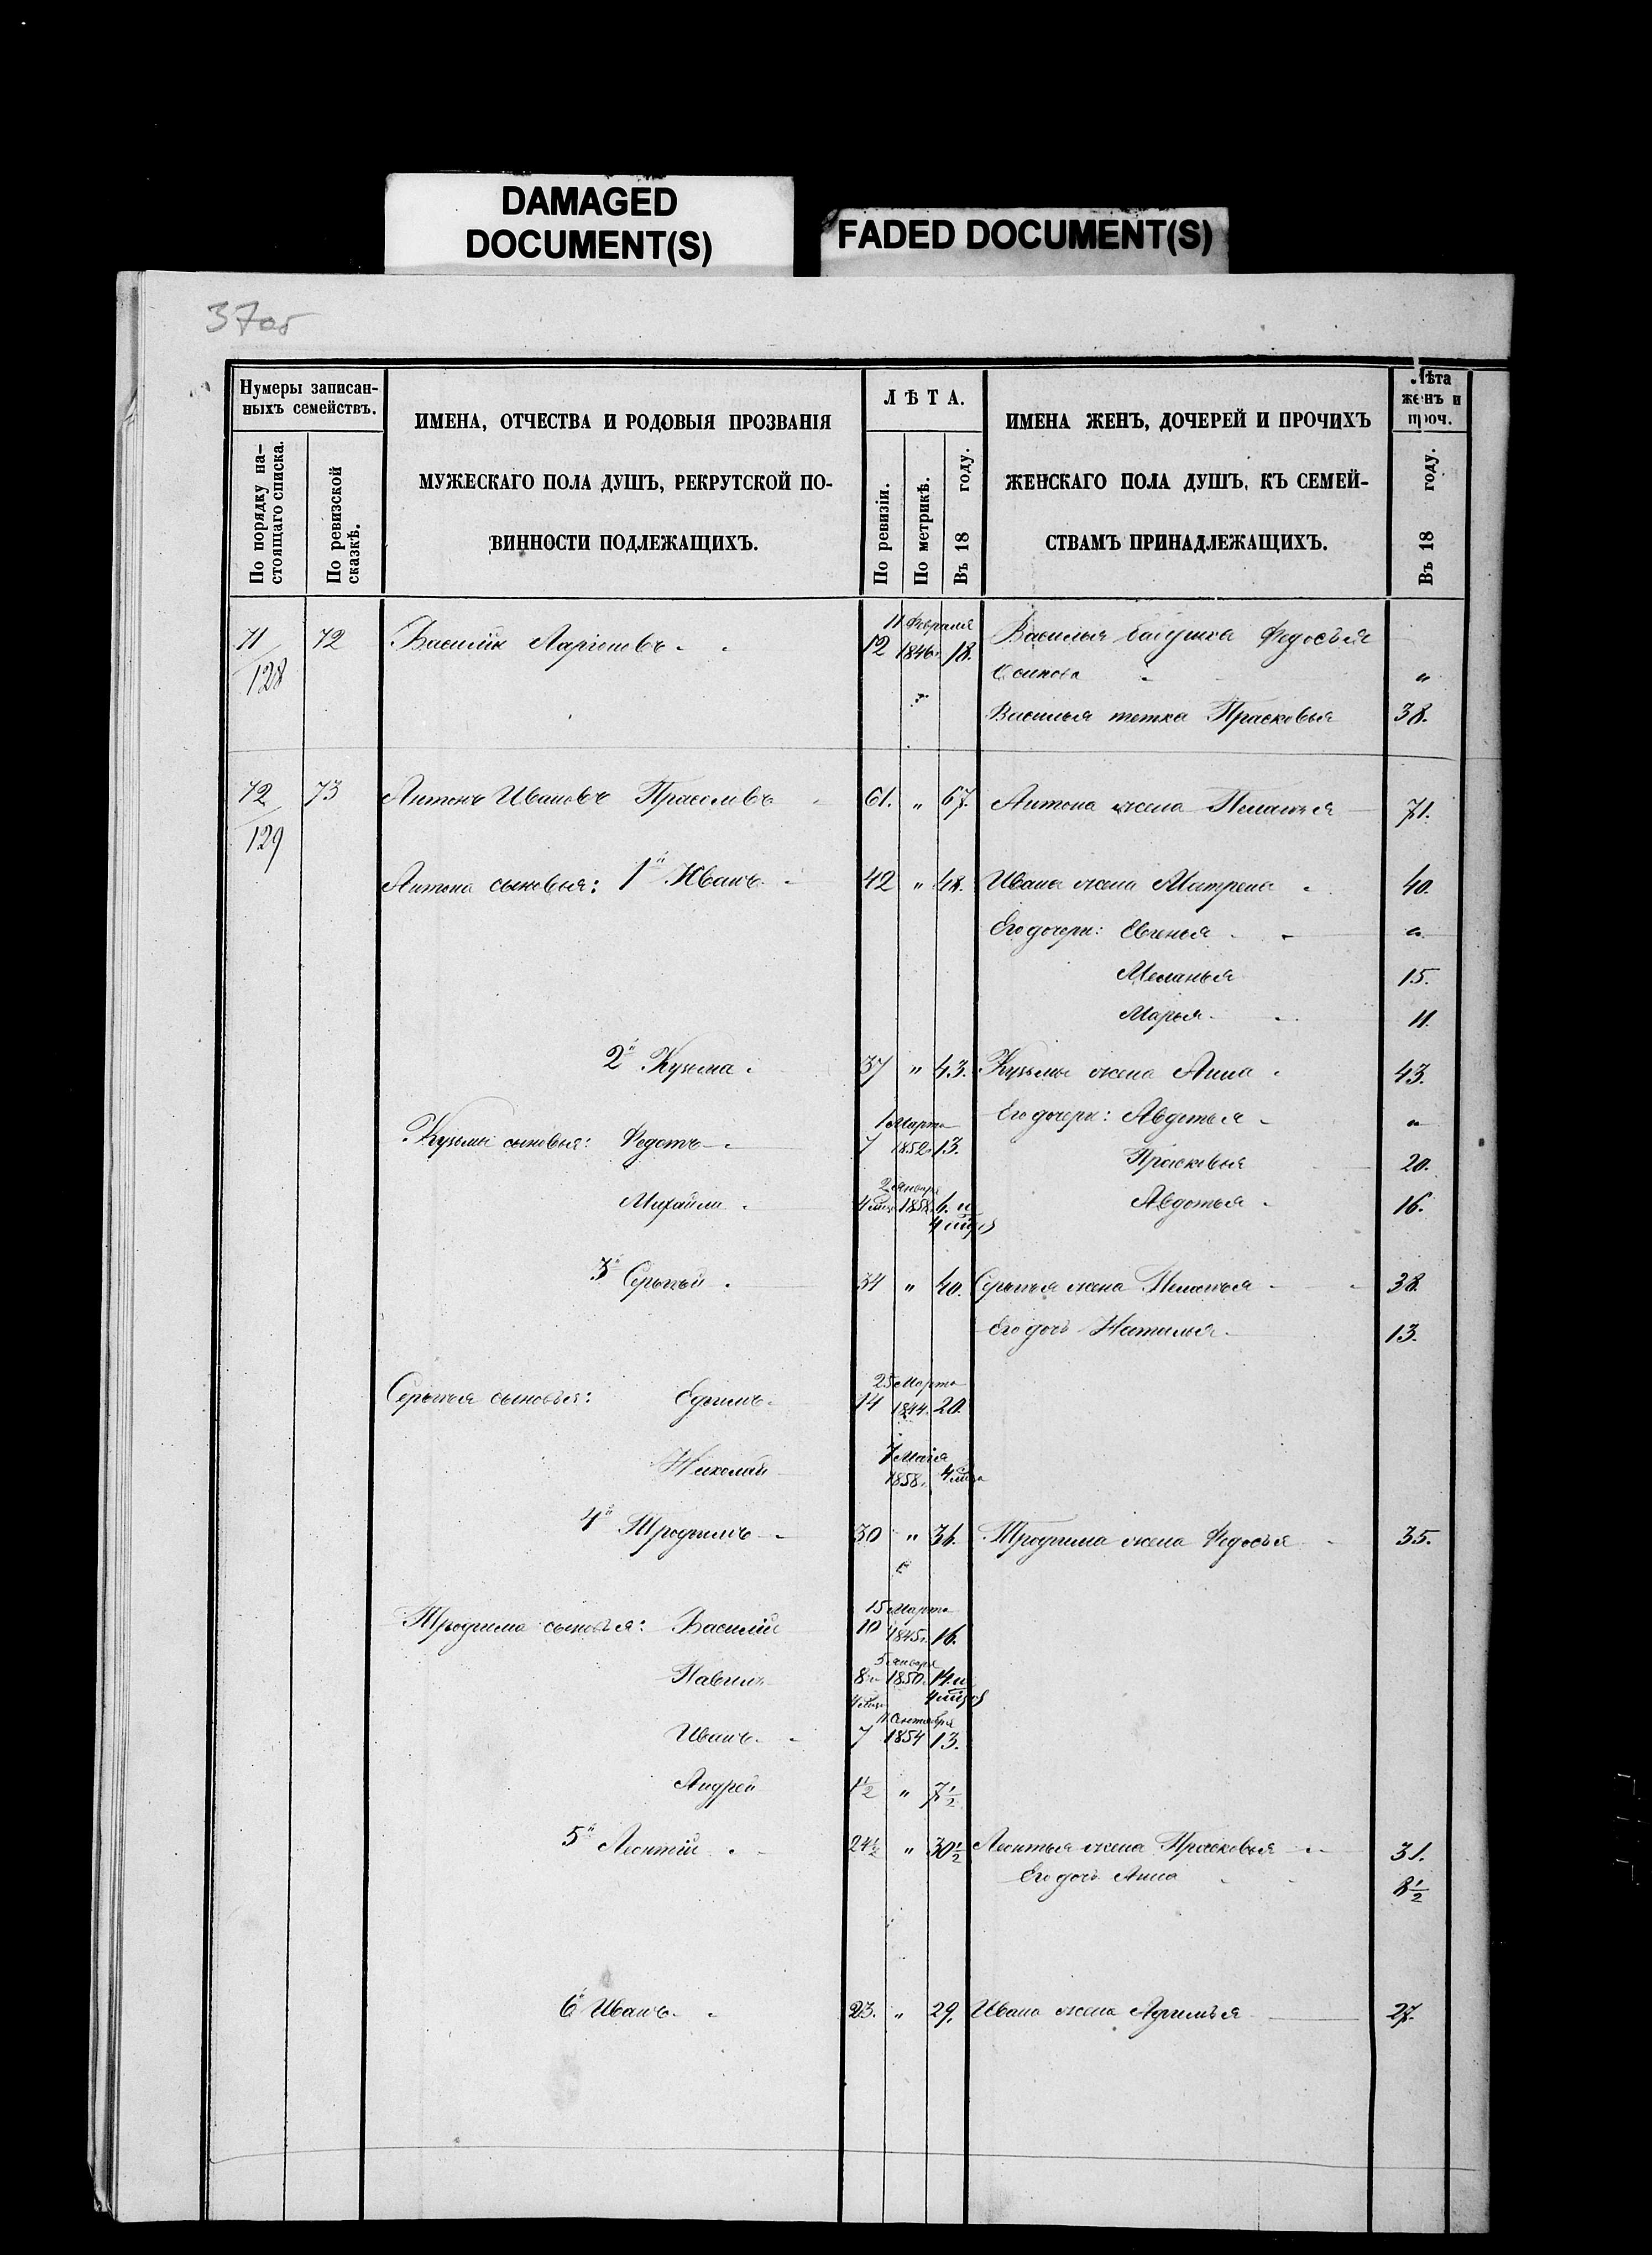 DAMAGED
DOCUMENT(S)
FADED DOCUMENT(S)
37об
Нумеры записан-
ныхъ семействъ.
По порядку на-
стоящаго списка.
По ревизской
сказкѣ.
ИМЕНА, ОТЧЕСТВА И РОДОВЫЯ ПРОЗВАНІЯ
МУЖЕСКАГО ПОЛА ДУШЪ, РЕКРУТСКОЙ ПО-
ВИННОСТИ ПОДЛЕЖАЩИХЪ.
ЛѢТА.
По ревизіи.
По метрикѣ.
Въ 18 году.
ИМЕНА ЖЕНЪ, ДОЧЕРЕЙ И ПРОЧИХЪ
ЖЕНСКАГО ПОЛА ДУШЪ, КЪ СЕМЕЙ-
СТВАМЪ ПРИНАДЛЕЖАЩИХЪ.
Лѣта
женъ и
проч.
Въ 18 году.
11 Февраля
71 72 Василій Ларіоновъ 12 1846 18. Василья бабушка Федосья
128 Осипова "
Василья тетка Прасковья 38.
72 73 Антонъ Ивановъ 61. " 67. Антона жена Пелагея 71.
129
Антона сыновья: 1й Иванъ 42 " 48. Ивана жена Матрена 40.
Его дочери: Евгенья "
Меланья 15.
Марья 11.
2й Кузьма 37 " 43. Кузьмы жена Анна 43.
1 Марта Его дочери: Авдотья "
Кузьмы сыновья: Федотъ 7 1852 13.
Прасковья 20.
2 Января
Михайла 4 1858 6. и Авдотья 16.
3й Сергѣй 34 " 40. Сергѣя жена Пелагея 38.
Его дочь Наталья 13.
25 Марта
Сергѣя сыновья: Ефимъ 14 1844. 20.
7 Маія
Николай 1858.
4й Трофимъ 30 " 36. Трофима жена Федосья 35.
15 Марта
Трофима сыновья: Василій 10 1845. 16.
5 Января
Павелъ 8 1850. 14. и
11 Сентября
Иванъ 7 1854 13.
Андрей 1½ " 7½
5й Леонтій 24½ " 30½ Леонтья жена Прасковья 31.
Его дочь Анна 8½
6й Иванъ 23. " 29. Ивана жена Афимья 27.